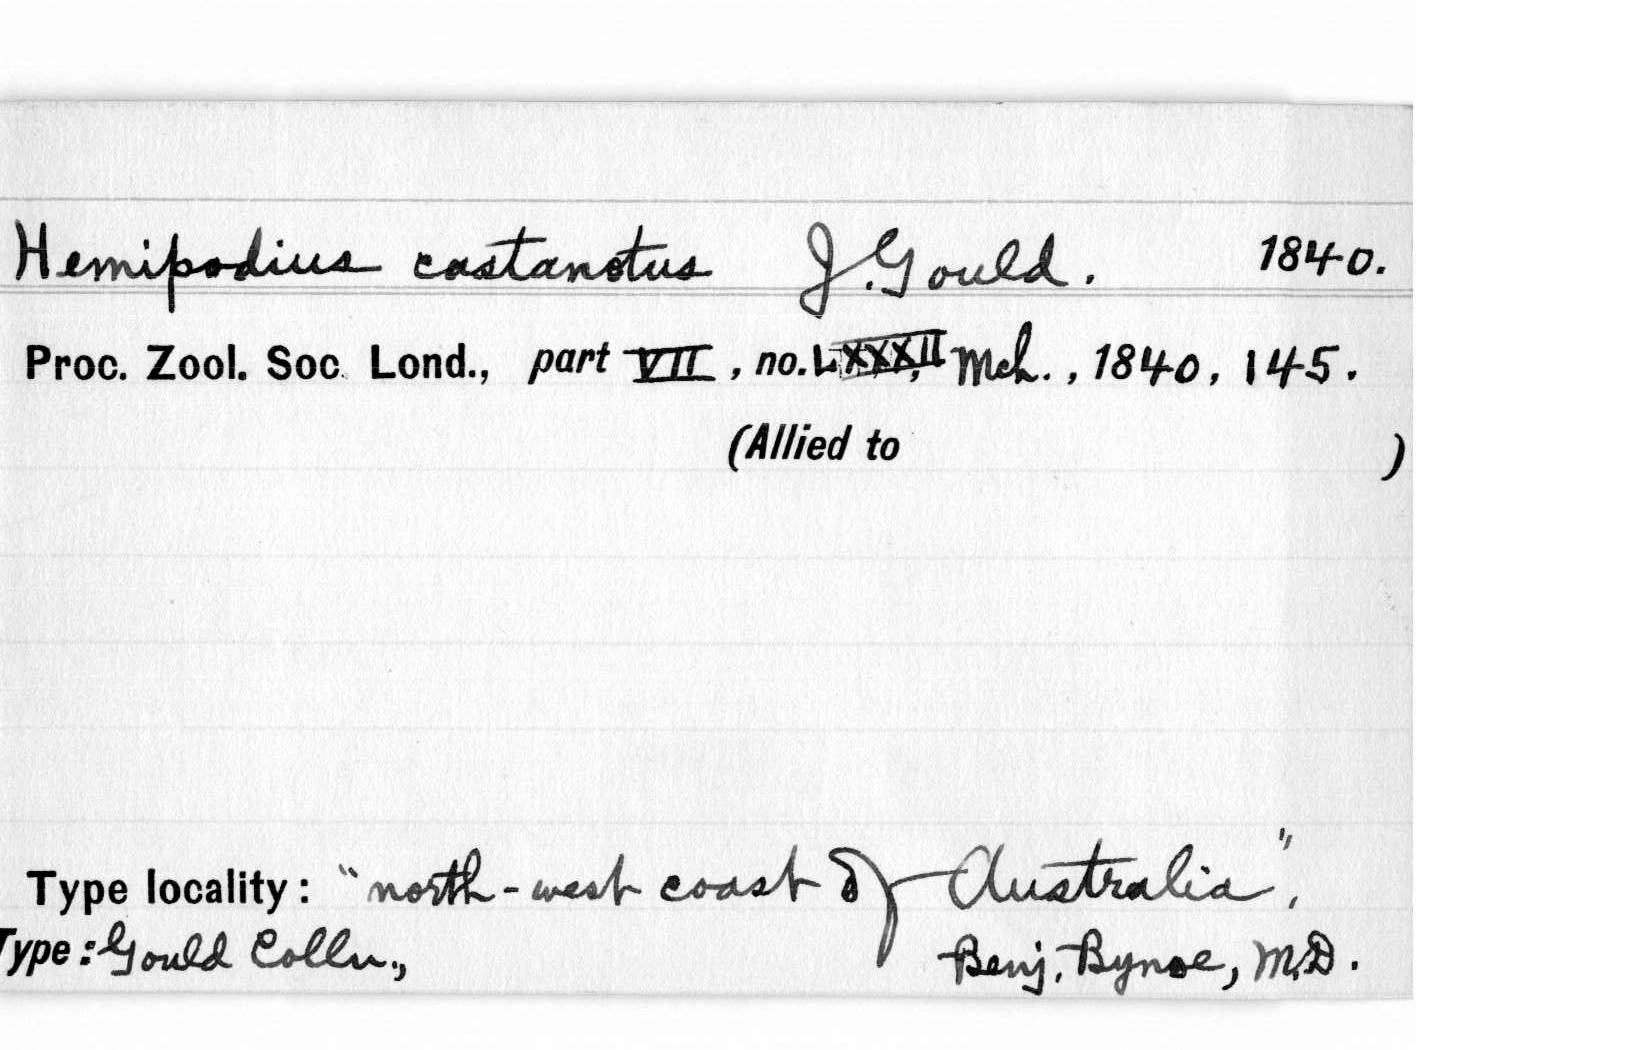 Hemipodius castanotus J. Gould. 1840.
Proc. Zool. Soc. Lond., part VII, no. LXXXII, Mch., 1840, 145.
(Allied to )
Type locality: "north-west coast of Australia",
Type: Gould Colln., Benj. Bynoe, M.D.